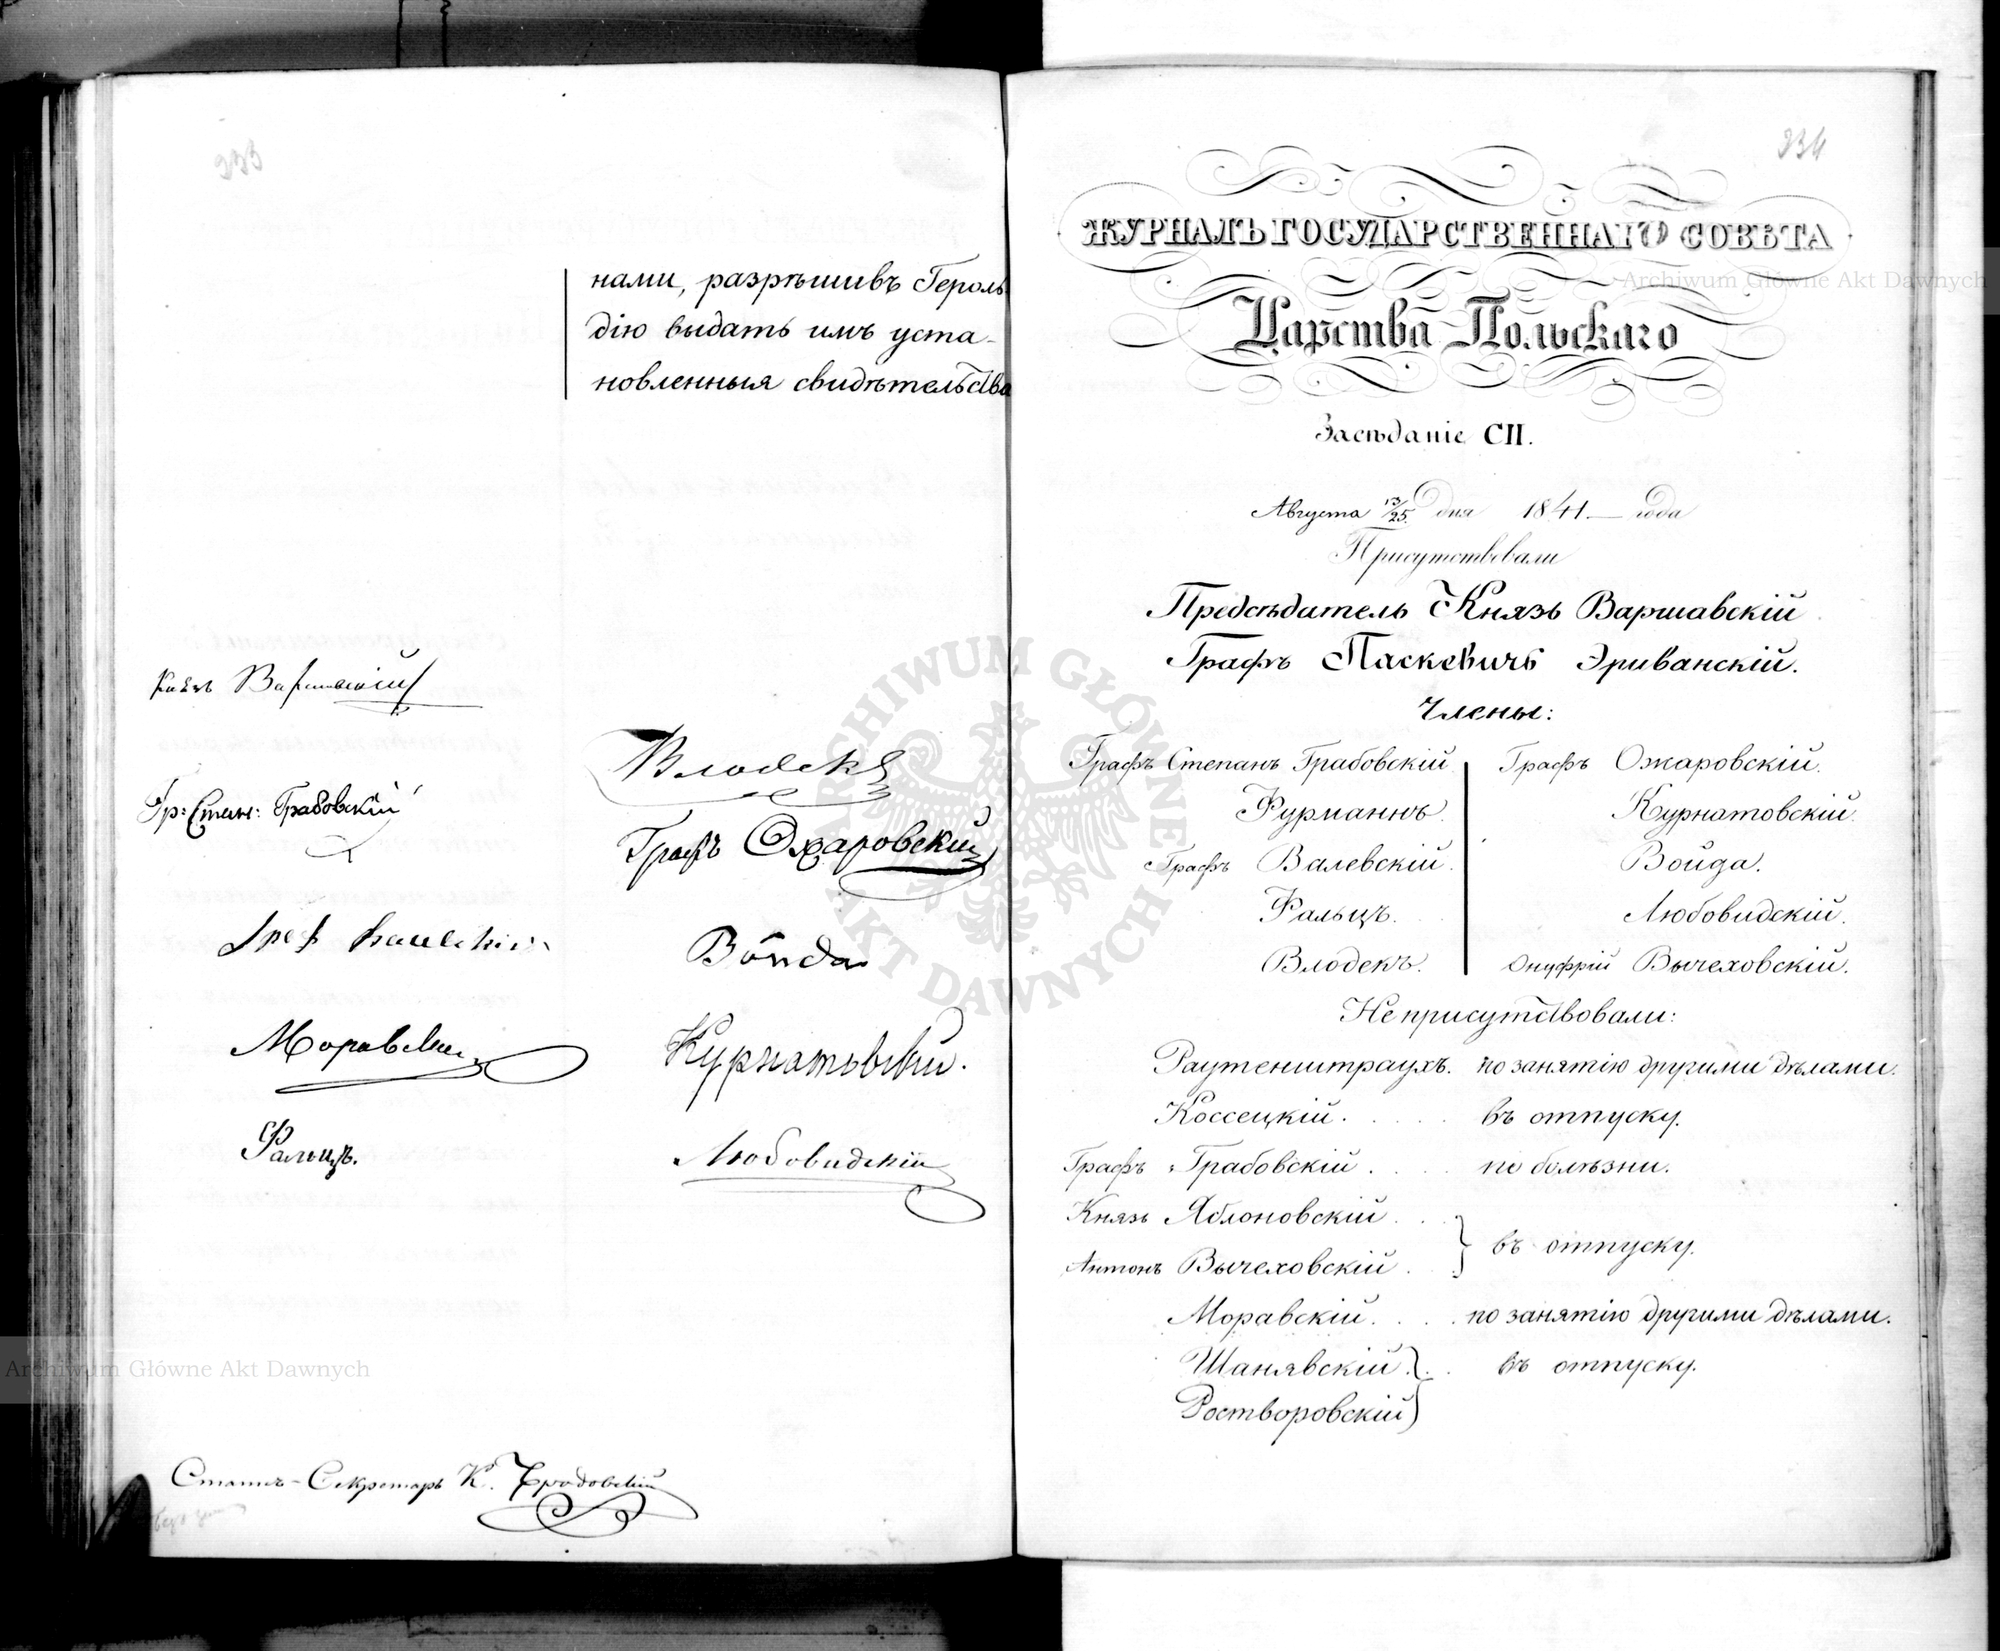 333
нами, разрѣшивъ Героль
дію выдать имъ уста-
новленныя свидѣтельства
Князь Варшавскій
Гр: Степ: Грабовскій
Моравскій
Фальцъ.
Влодекъ
Графъ Ожаровскій
Войда
Курнатовскій.
Любовидскій
Статсъ-Секретарь К.
334
ЖУРНАЛЪ ГОСУДАРСТВЕННАГО СОВѢТА
Царства Польскаго
Засѣданіе CII.
Августа 13/25 дня 1841 года
Присутствовали
Предсѣдатель Князь Варшавскій
Графъ Паскевичъ Эриванскій.
Члены:
Графъ Степанъ Грабовскій. Графъ Ожаровскій.
Фурманнъ. Курнатовскій.
Графъ Валевскій. Войда.
Фальцъ. Любовидскій.
Влодекъ. Онуфрій Вычеховскій.
Не присутствовали:
Раутенштраухъ. по занятію другими дѣлами.
Коссецкій. . . . . въ отпуску.
Графъ Грабовскій . . . . по болѣзни.
Князь Яблоновскій . .
Антонъ Вычеховскій . . } въ отпуску.
Моравскій. . . . . по занятію другими дѣлами.
Шанявскій } . . въ отпуску.
Ростворовскій
Archiwum Główne Akt Dawnych
Archiwum Główne Akt Dawnych
ARCHIWUM GŁÓWNE AKT DAWNYCH